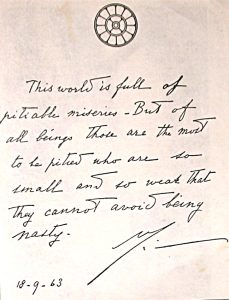 This world is full of
pitiable miseries - But of
all beings those are the most
to be pitied who are so
small and so weak that
they cannot avoid being
nasty.
18-9-63